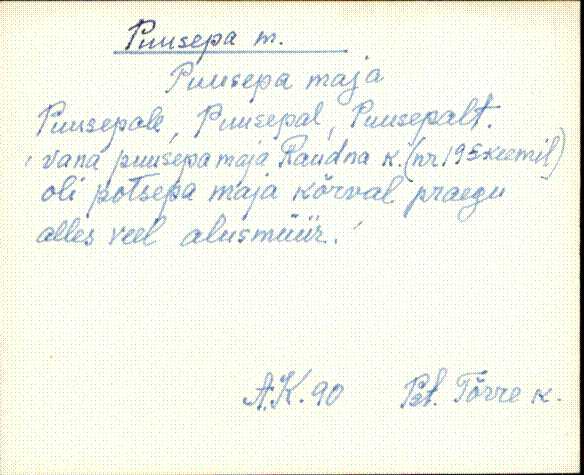 Puusepa m.
Puusepa maja
Puusepale, Puusepal, Puusepalt.
vana puusepa maja Raudna k. (nr 195 skeemil)
oli potsepa maja kõrval praegu
alles veel alusmüür.
A.K. 90 Pst. Tõrre k.